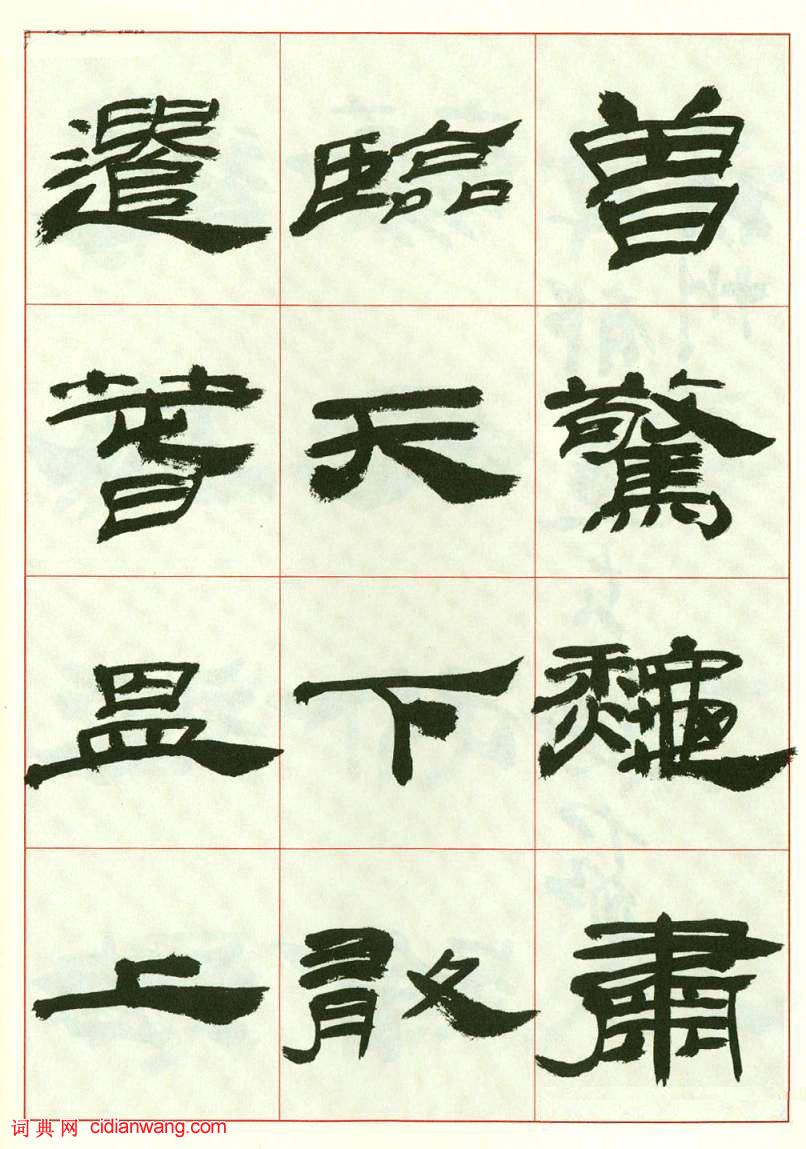 曾驚龝肅
臨天下敢
遣萅𥁕上
词典网 cidianwang.com